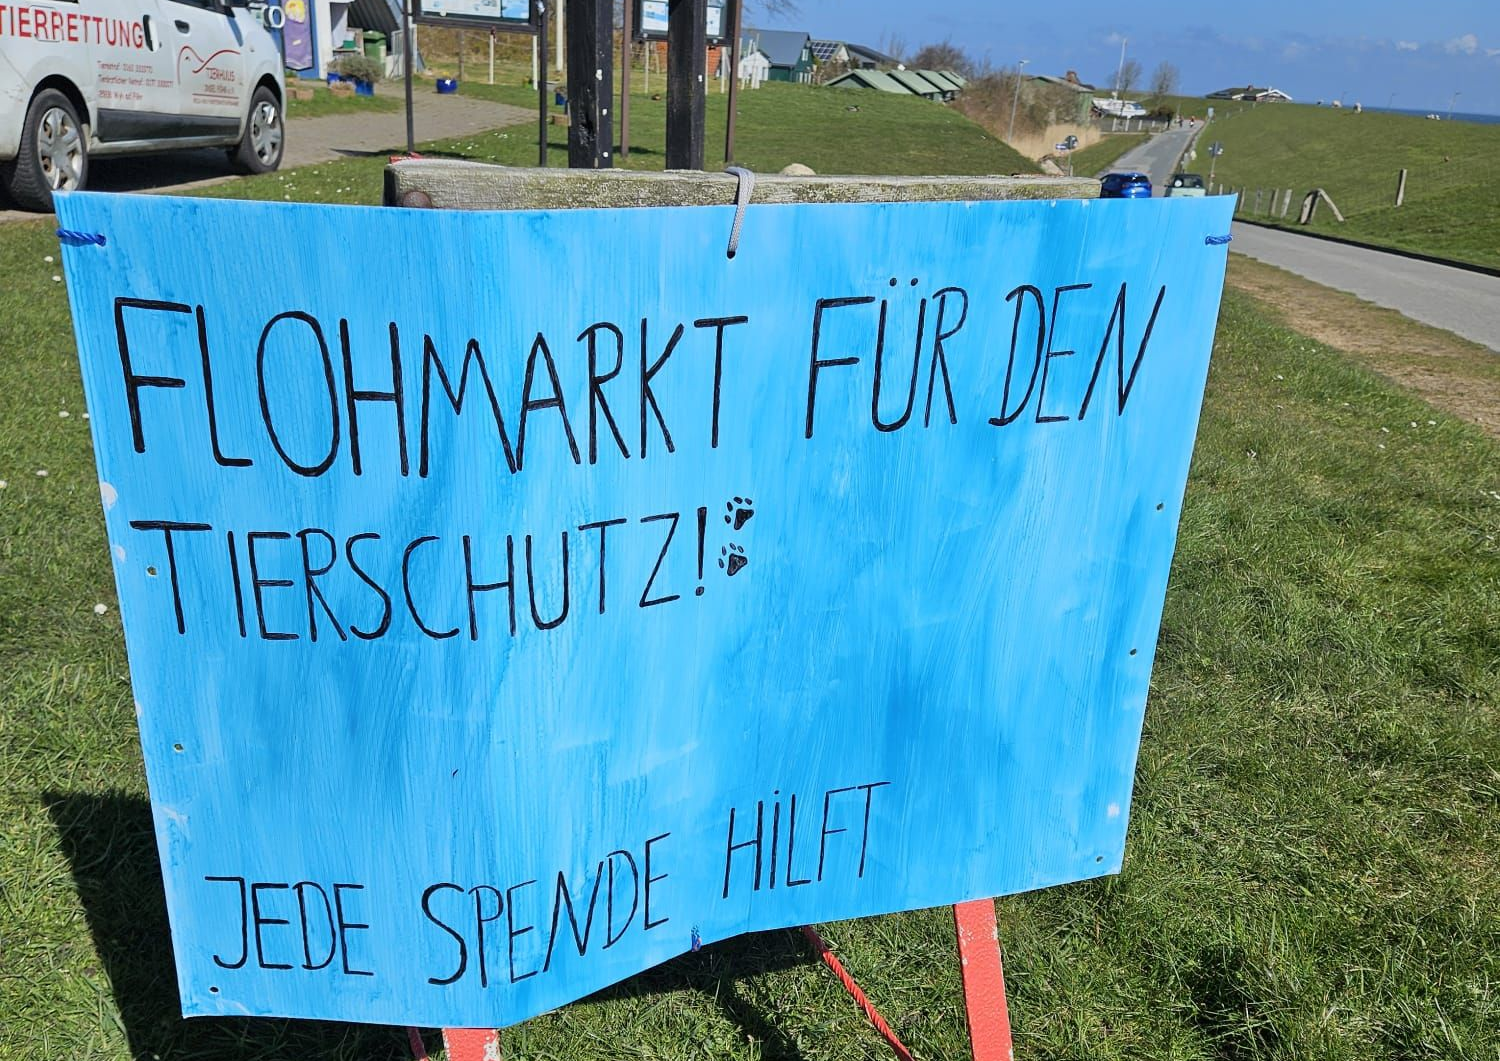 TIERRETTUNG
TIERHUUS
FLOHMARKT FÜR DEN
TIERSCHUTZ!
JEDE SPENDE HiLFT